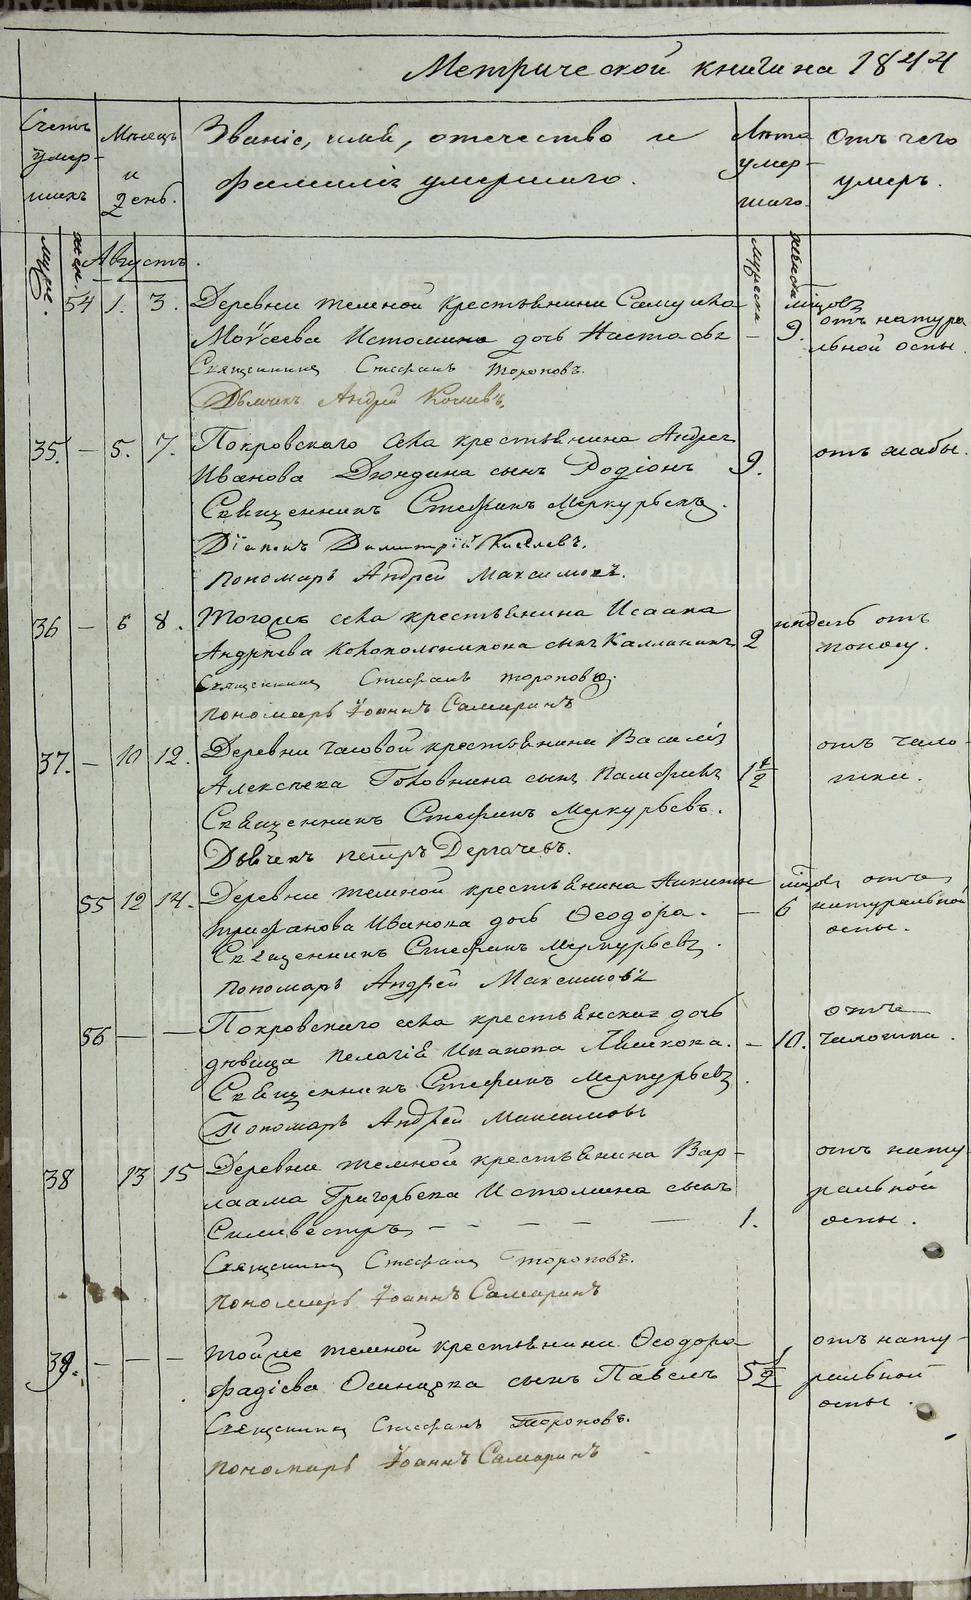 Метрической книги на 1844
Счетъ умер-шихъ
Мѣсяцъ и день.
Званіе, имя, отечество и
фамилія умершаго.
Лѣта умер-шаго.
Отъ чего умеръ.
муж.
жен.
Августъ.
мужеска
женска
54 1. 3. Деревни темной крестьянина Самуила мѣцовъ
Моѵсеева Истомина дочь Настасья — 9. отъ натура
льной оспы.
Священникъ Стефанъ Тороповъ.
Дьячекъ Андрей
35. — 5. 7. Покровскаго села крестьянина Андрея
Иванова Дюндина сынъ Родіонъ 9. отъ жабы.
Священникъ Стефанъ Меркурьевъ.
Діаконъ Димитрій Киселевъ.
Пономарь Андрей Максимовъ.
36 — 6 8. Тогоже села крестьянина Исаака недель отъ
Андреева Колокольникова сынъ Каллиникъ 2 поносу.
Священникъ Стефанъ Тороповъ.
Пономарь Іоаннъ Самаринъ
37. — 10 12. Деревни часовой крестьянина Василія отъ чахо-
Алексѣева Головнина сынъ Памфилъ 1 1/2 тки.
Священникъ Стефанъ Меркурьевъ.
Дьячекъ Петръ Дергачевъ.
55 12 14. Деревни темной крестьянина Никиты мѣцовъ отъ
Трифанова Иванова дочь Ѳеодора. — 6 натуральной
оспы.
Священникъ Стефанъ Меркурьевъ.
Пономарь Андрей Максимовъ
56 — — Покровскаго села крестьянская дочь отъ
дѣвица Пелагія Иванова — 10. чахотки.
Священникъ Стефанъ Меркурьевъ.
Пономарь Андрей Максимовъ
38 13 15 Деревни темной крестьянина Вар- отъ нату
лаама Григорьева Истомина сынъ ральной
Силивестръ — — — — — 1. оспы.
Священникъ Стефанъ Тороповъ.
Пономарь Іоаннъ Самаринъ
39. — — — Тойже темной крестьянина Ѳеодора отъ нату-
Фадіева Осинцева сынъ Павелъ 5 1/2 ральной
оспы.
Священникъ Стефанъ Тороповъ.
Пономарь Іоаннъ Самаринъ
METRIKI.GASO-URAL.RU